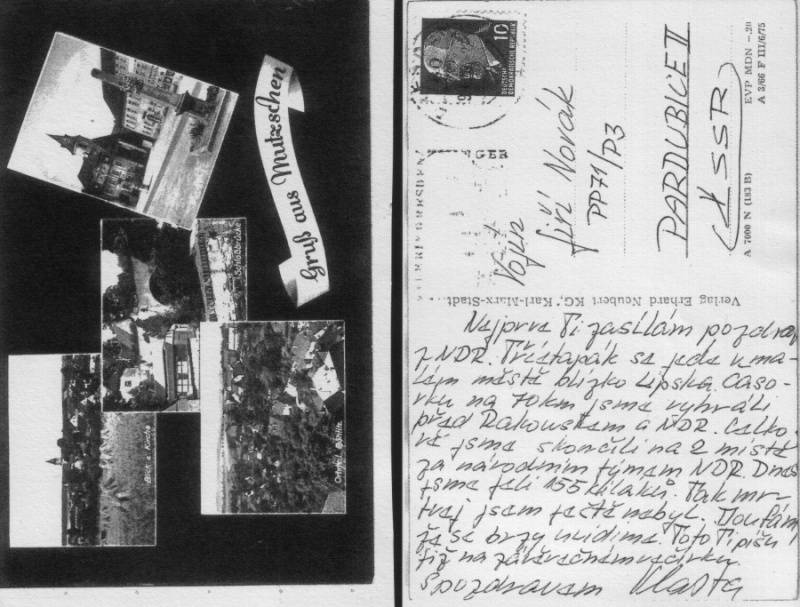 Gruß aus Mutzschen
Schloßbrücke
DEUTSCHE
DEMOKRATISCHE REPUBLIK
10
Vojín
Jiří Novák
PP71/P3
PARDUBICE II
ČSSR
EVP MDN -,20
A 3/66 F III/6/75
A 7000 N (183 B)
Verlag Erhard Neubert KG, Karl-Marx-Stadt
Nejprve Ti zasílám pozdrav
z NDR. Třietapák se jede v ma-
lém městě blízko Lipska. Časo-
vku na 70km jsme vyhráli
před Rakouskem a NDR. Celko-
vě jsme skončili na 2 místě
za národním týmem NDR. Dnes
jsme jeli 155 kiláků. Tak mr-
tvej jsem ještě nebyl. Doufám
že se brzy uvidíme. Toto Ti píšu
již na závěrečném večírku.
S pozdravem Vlasta